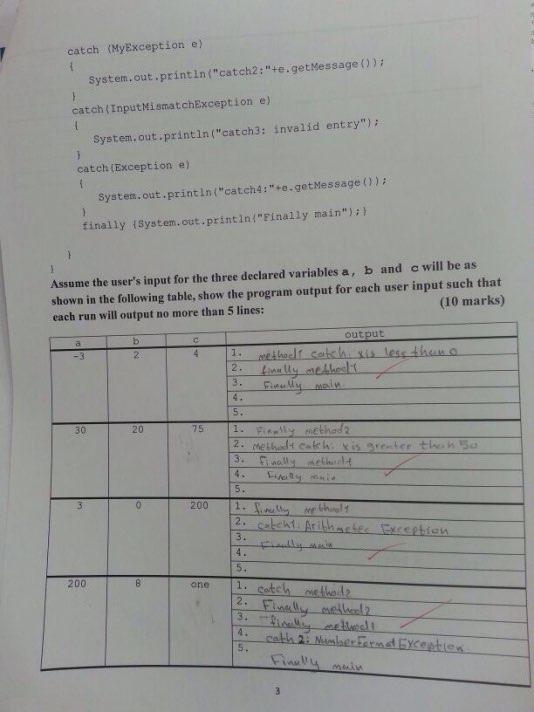 catch (MyException e)
{
System.out.println("catch2:"+e.getMessage());
}
catch(InputMismatchException e)
{
System.out.println("catch3: invalid entry");
}
catch(Exception e)
{
System.out.println("catch4:"+e.getMessage());
}
finally {System.out.println("Finally main");}
}
}
Assume the user's input for the three declared variables a, b and c will be as
shown in the following table, show the program output for each user input such that
each run will output no more than 5 lines: (10 marks)
a b c output
-3 2 4 1. method1 catch: x is less than 0
2. finally method1
3. Finally main
4.
5.
30 20 75 1. Finally method2
2. method1 catch: x is greater than 50
3. Finally method1
4. Finally main
5.
3 0 200 1. finally method1
2. catch1: Arithmetec Exception
3. Finally main
4.
5.
200 8 one 1. catch method2
2. Finally method2
3. finally method1
4. cath 2: NumberFormatException
5. Finally main
3